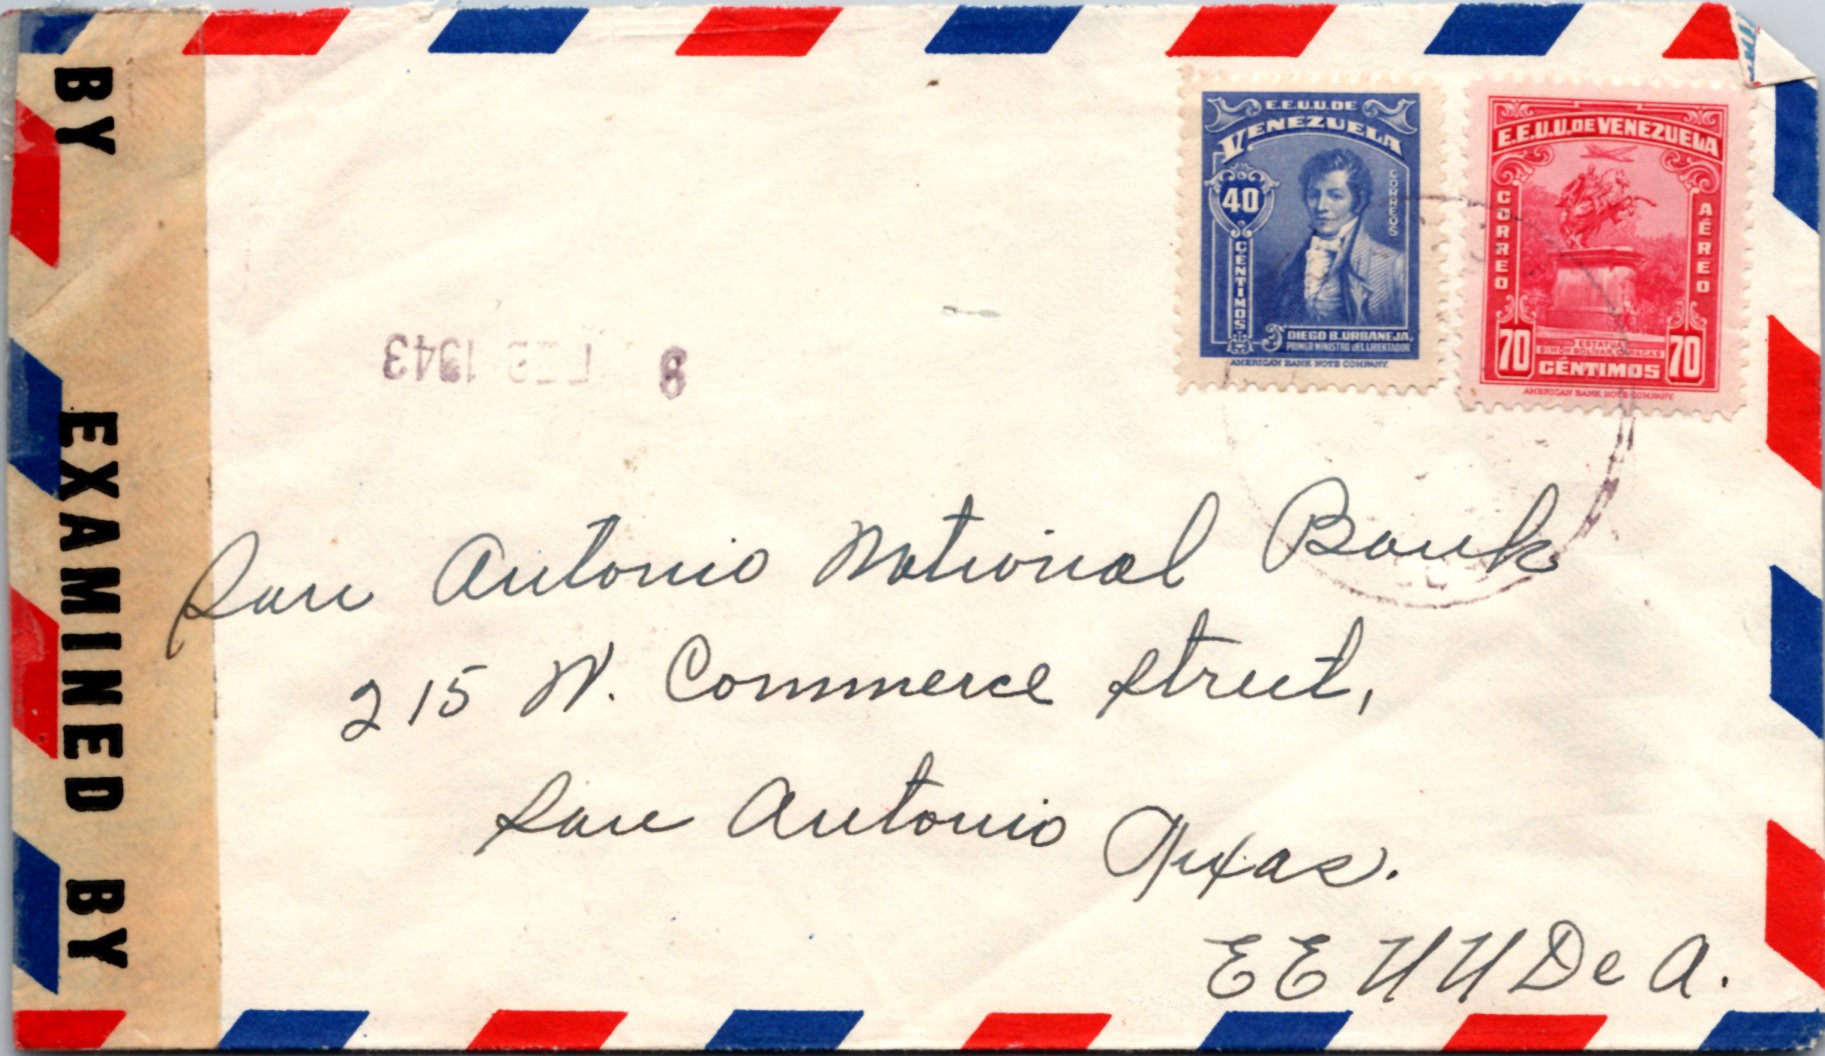 BY
EXAMINED BY
E.E.U.U.DE
VENEZUELA
40
CENTIMOS
CORREOS
DIEGO B. URBANEJA,
PRIMER MINISTRO DEL LIBERTADOR
AMERICAN BANK NOTE COMPANY
E.E.U.U.DE VENEZUELA
CORREO
AÉREO
ESTATUA
SIMON BOLIVAR-CARACAS
70 CÉNTIMOS 70
AMERICAN BANK NOTE COMPANY
FEB 1943
San Antonio National Bank
215 W. Commerce Street,
San Antonio Texas.
EE UU De A.